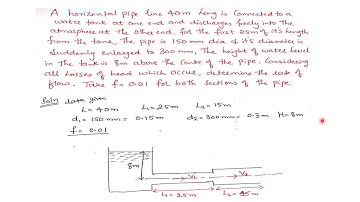 A horizontal pipe line 40m long is connected to a
water tank at one end and discharges freely into the
atmosphere at the other end. for the first 25m of it's length
from the tank, The pipe is 150mm dia & it's diameter is
suddenly enlarged to 300mm. The height of water level
in the tank is 8m above the centre of the pipe. Considering
all Losses of head which occur, determine the rate of
flow. Take f=0.01 for both sections of the pipe.
Soln) data given
L=40m L1=25m L2=15m
d1=150mm=0.15m d2=300mm=0.3m H=8m
f=0.01
8m
V1 V2
L1=25m L2=15m